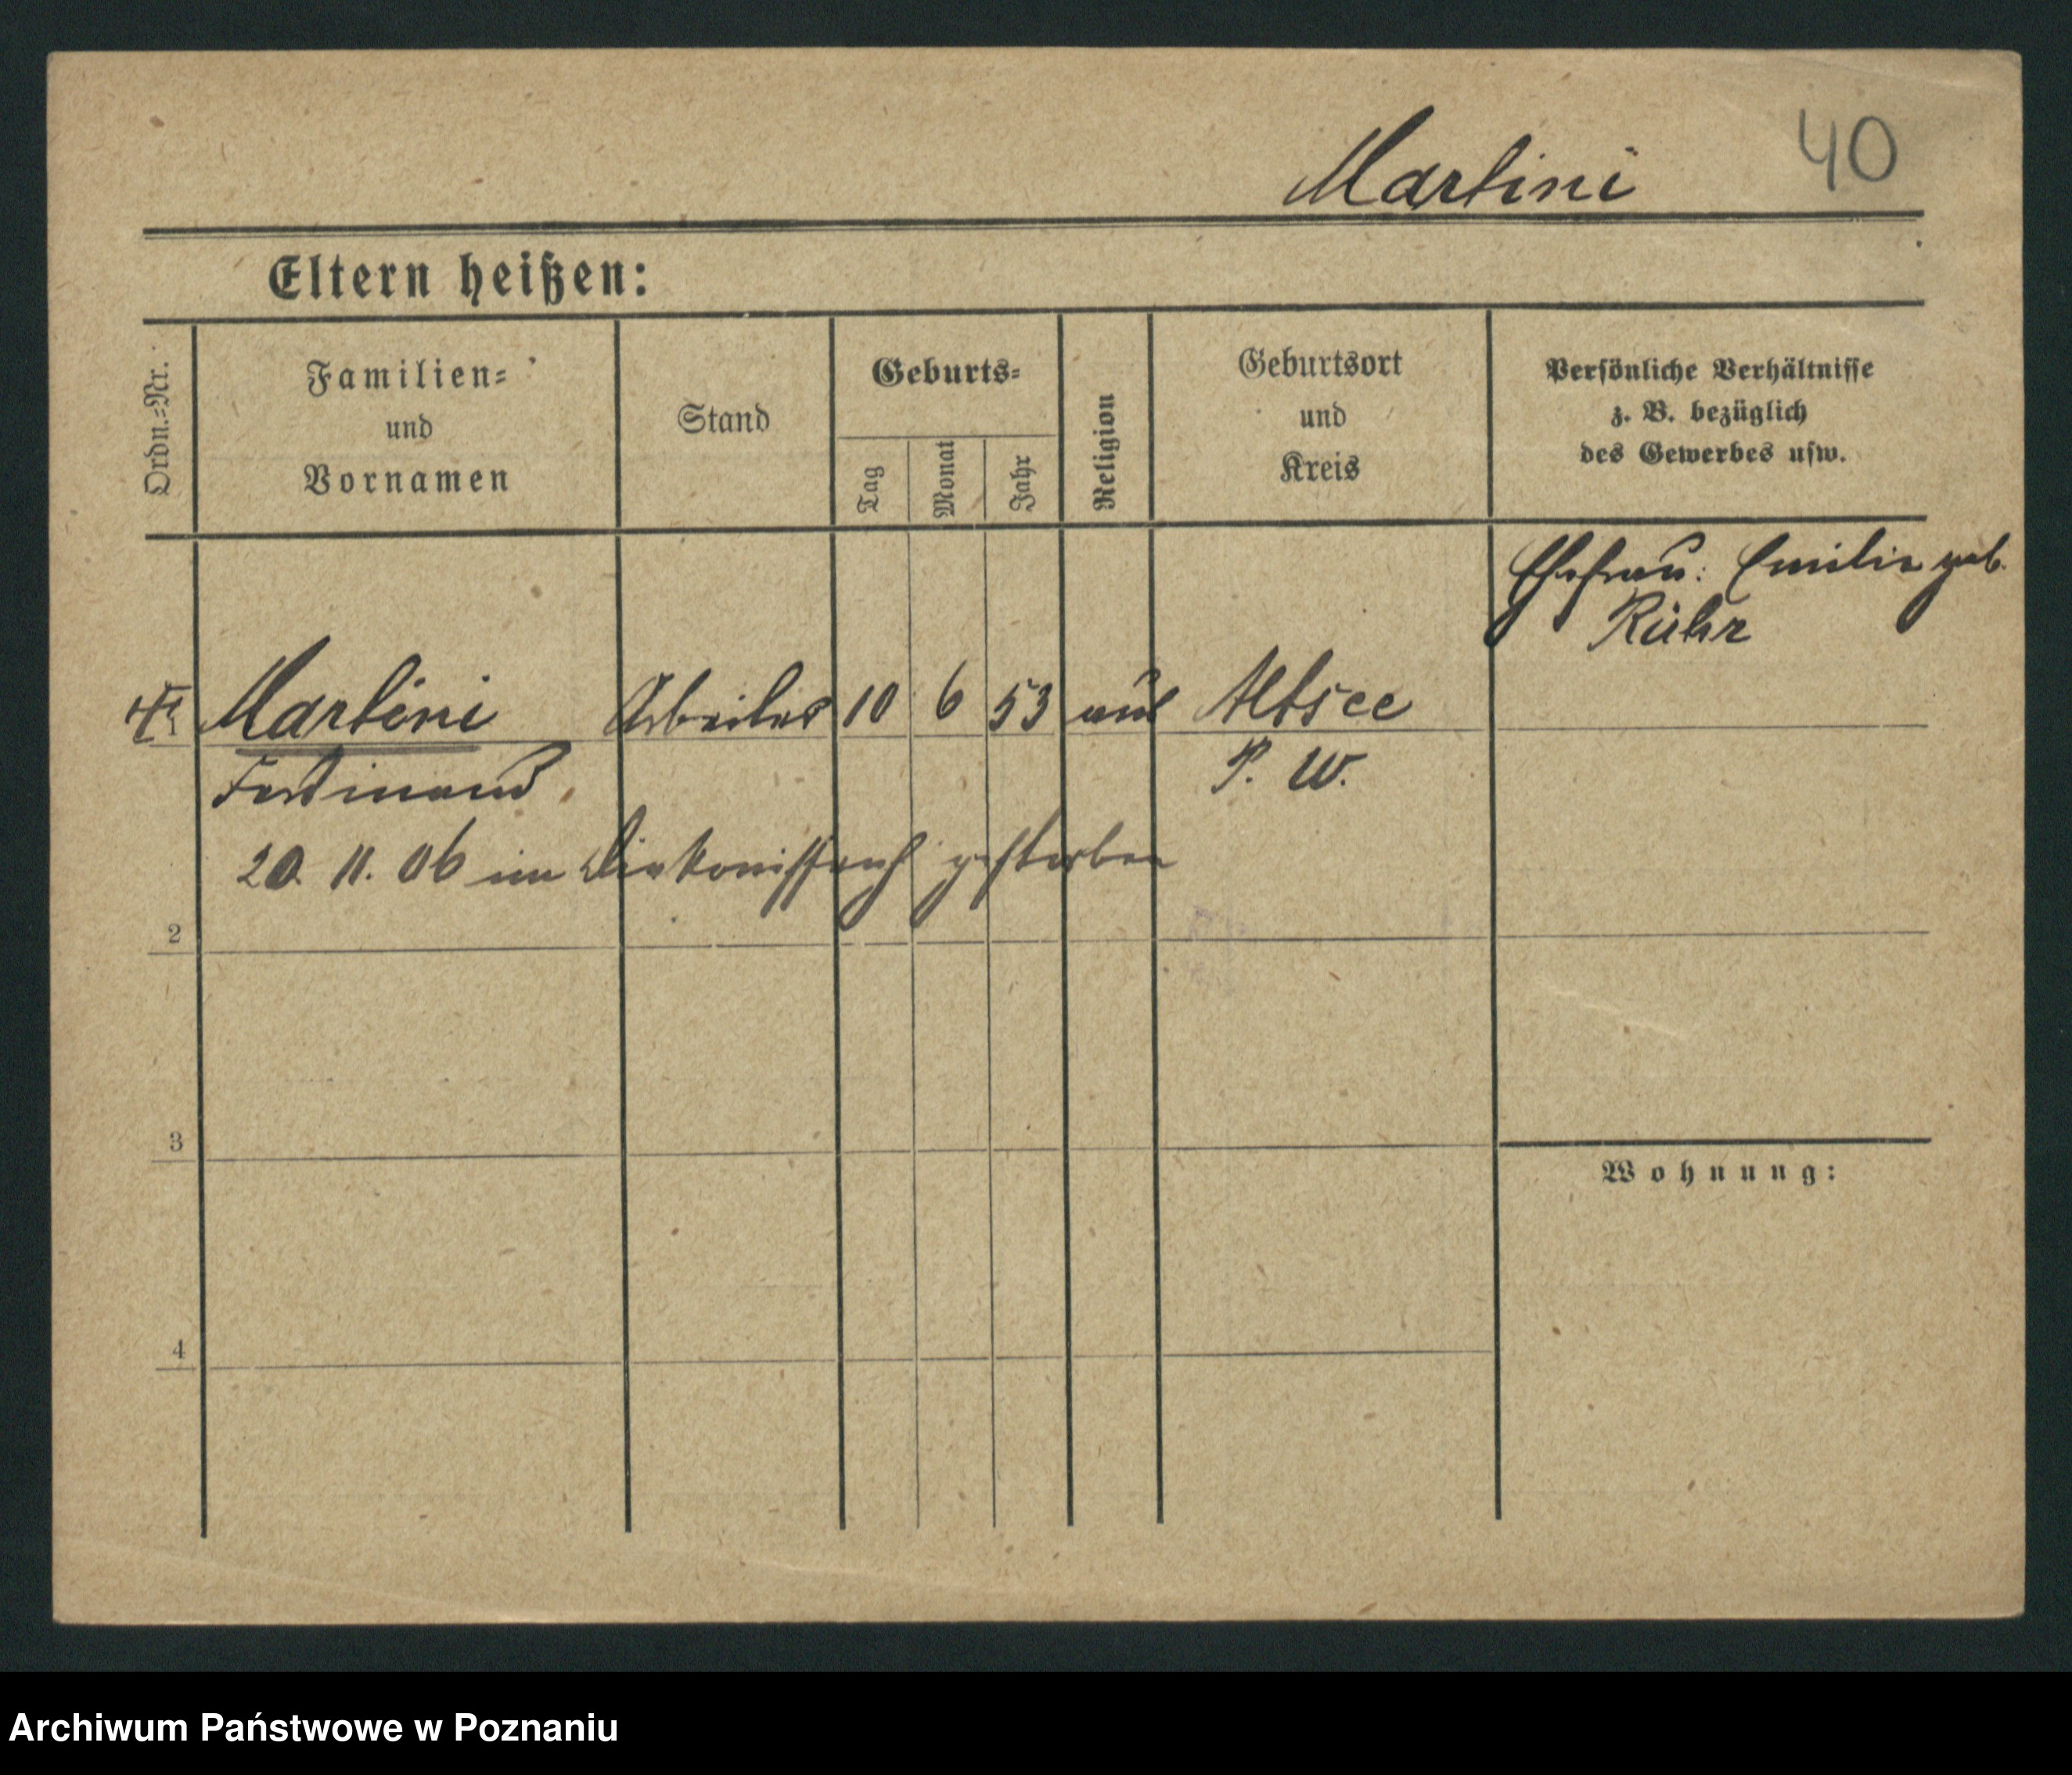 Martini 40
Eltern heißen:
Ordn.=Nr.
Familien=
und
Vornamen
Stand
Geburts=
Tag
Monat
Jahr
Religion
Geburtsort
und
Kreis
Persönliche Verhältnisse
z. B. bezüglich
des Gewerbes usw.
Ehefrau: Emilie geb.
Rühr
Martini Arbeiter 10 6 53 Altsee
Ferdinand P. W.
20. 11. 06 im Diakonissenh gestorben
2
3
Wohnung:
4
Archiwum Państwowe w Poznaniu